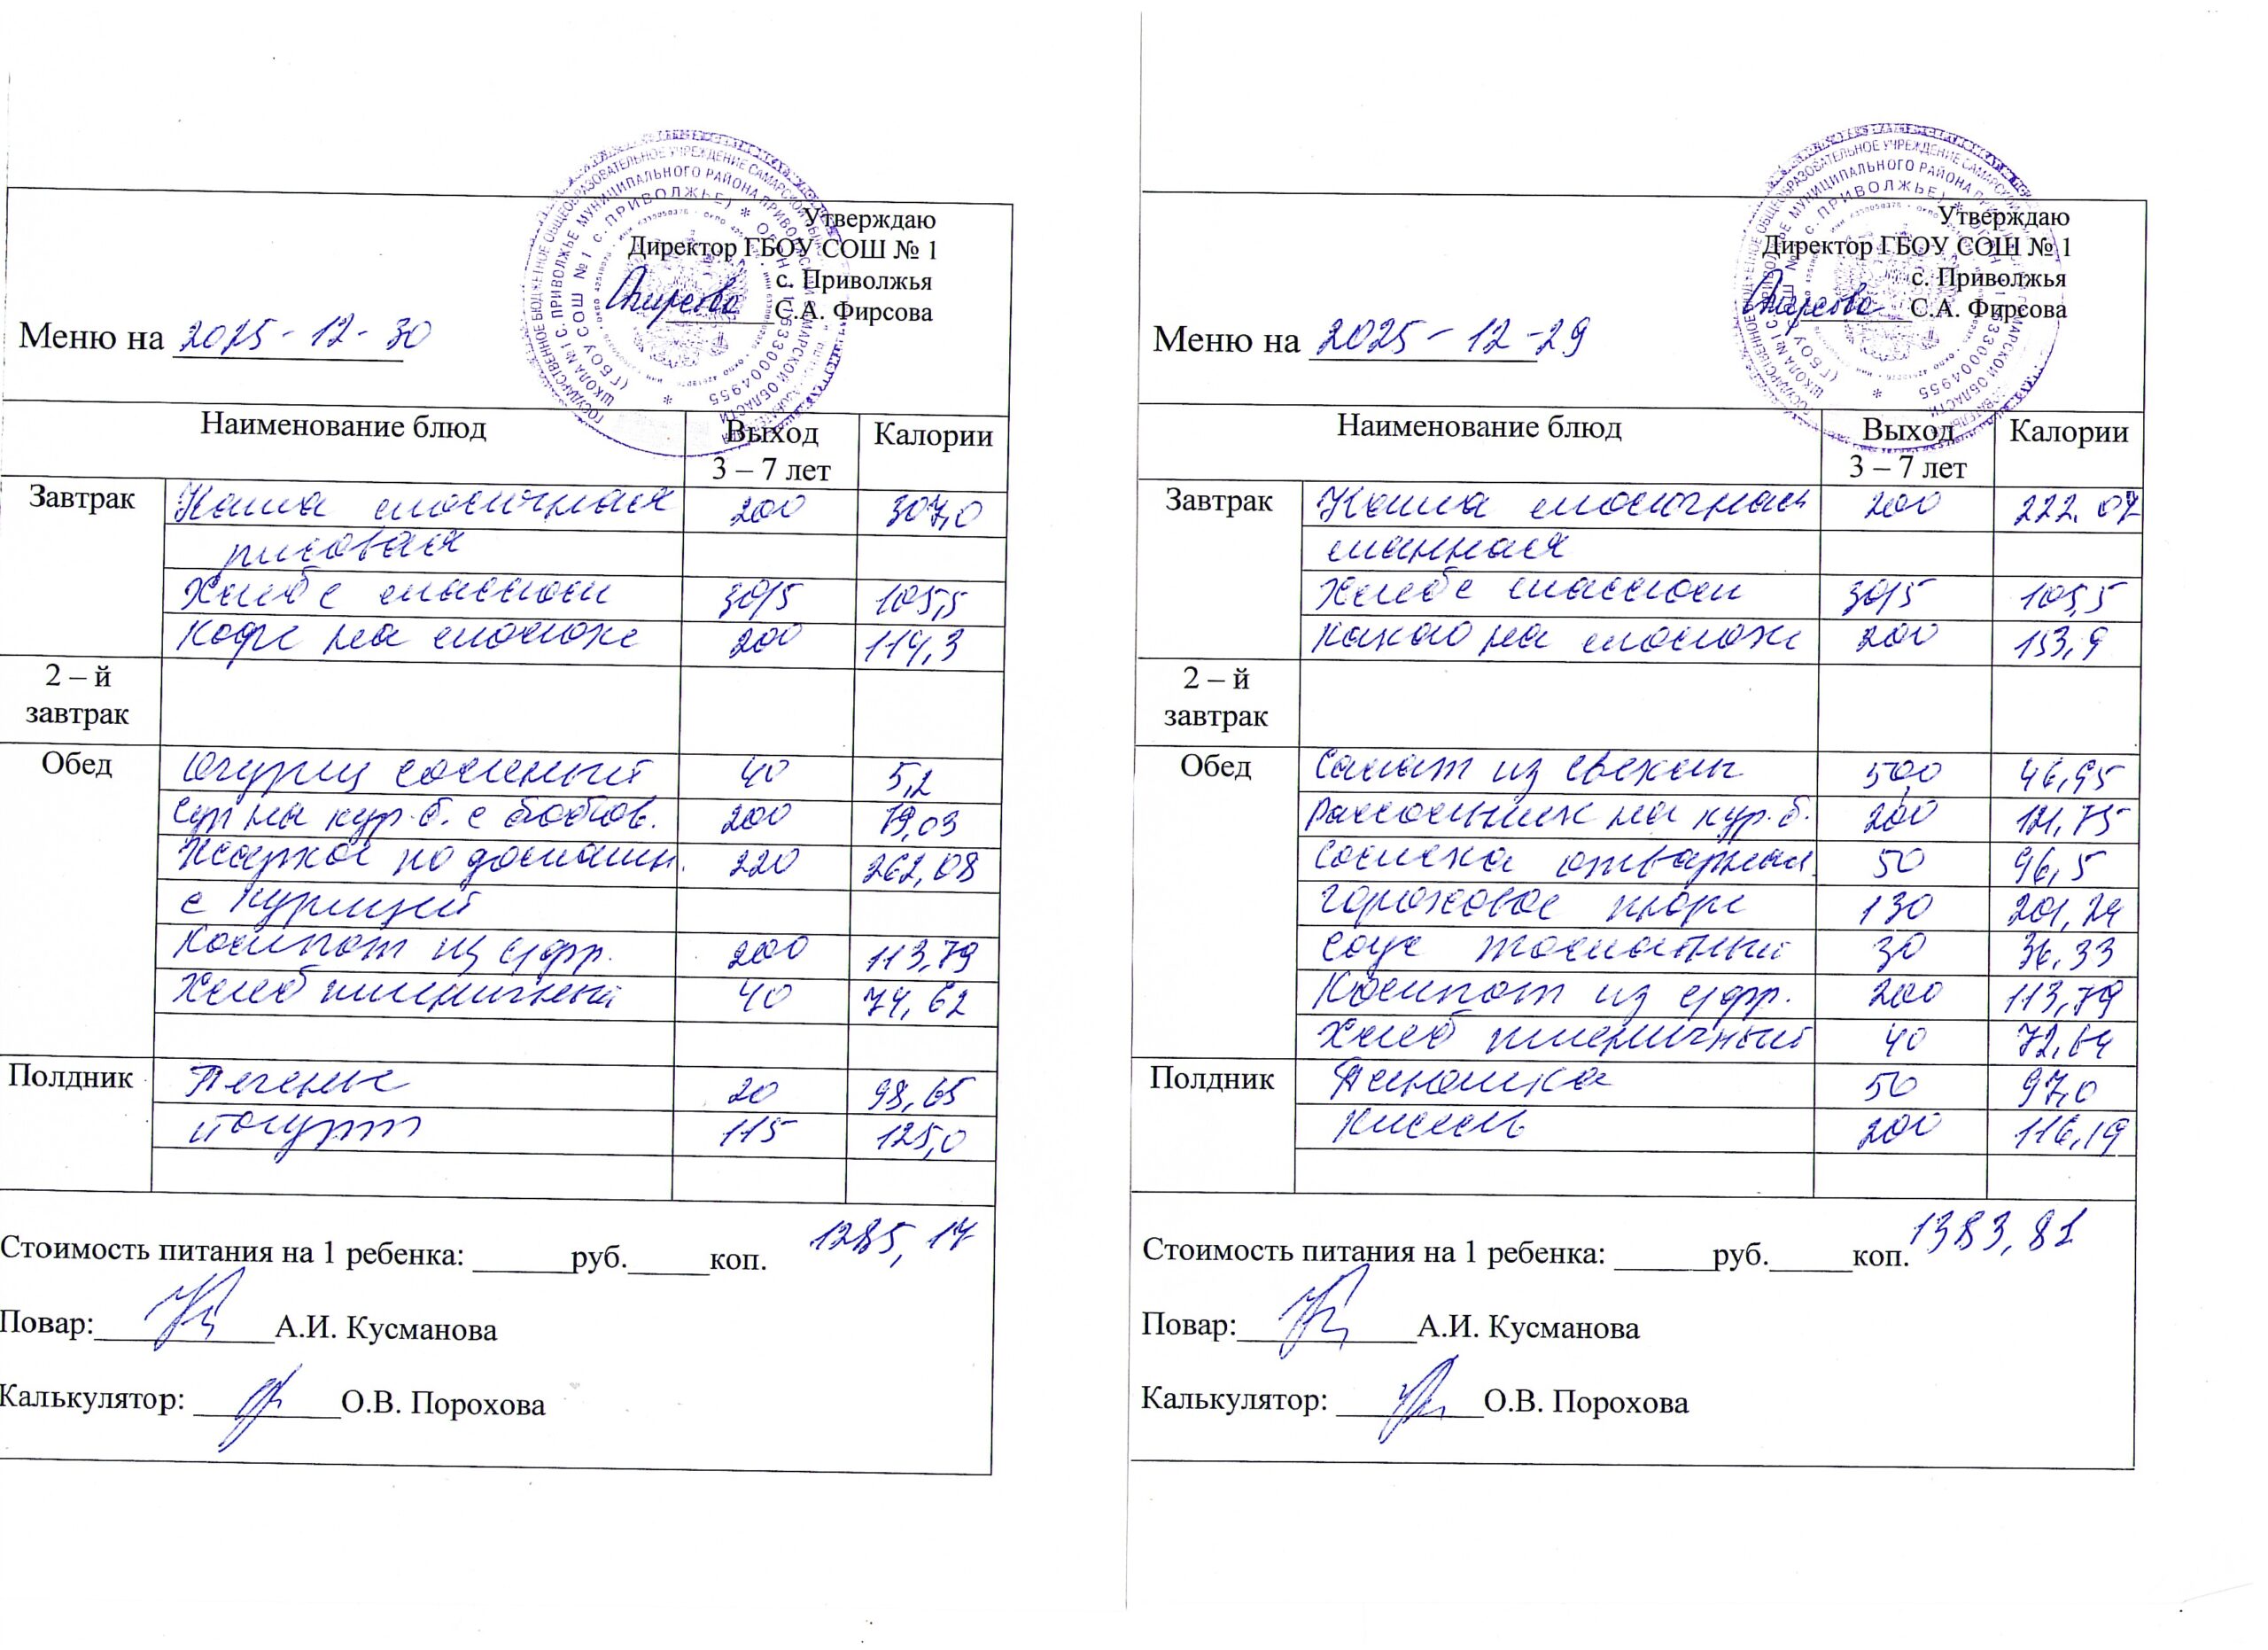 Утверждаю
Директор ГБОУ СОШ № 1
с. Приволжья
С.А. Фирсова
Меню на 2025-12-30
Наименование блюд Выход 3 – 7 лет Калории
Завтрак Каша молочная 200 307,0
рисовая
Хлеб с маслом 30/5 105,5
Кофе на молоке 200 114,3
2 – й завтрак
Обед Огурец соленый 40 5,2
Суп на кур. б. с бобов. 200 79,03
Жаркое по домашн. 220 262,08
с курицей
Компот из с/фр. 200 113,79
Хлеб пшеничный 40 74,62
Полдник Печенье 20 98,65
Йогурт 115 125,0
1285,17
Стоимость питания на 1 ребенка: ______руб._____коп.
Повар: А.И. Кусманова
Калькулятор: О.В. Порохова
Утверждаю
Директор ГБОУ СОШ № 1
с. Приволжья
С.А. Фирсова
Меню на 2025-12-29
Наименование блюд Выход 3 – 7 лет Калории
Завтрак Каша молочная 200 222.07
манная
Хлеб с маслом 30/5 105,5
Какао на молоке 200 153,9
2 – й завтрак
Обед Салат из свеклы 50,0 46,95
Рассольник на кур. б. 200 121,75
Сосиска отварная 50 96,5
Гороховое пюре 130 201,24
Соус томатный 30 36,33
Компот из с/фр. 200 113,79
Хлеб пшеничный 40 72,64
Полдник 50 97,0
Кисель 200 116,19
1383,81
Стоимость питания на 1 ребенка: ______руб._____коп.
Повар: А.И. Кусманова
Калькулятор: О.В. Порохова